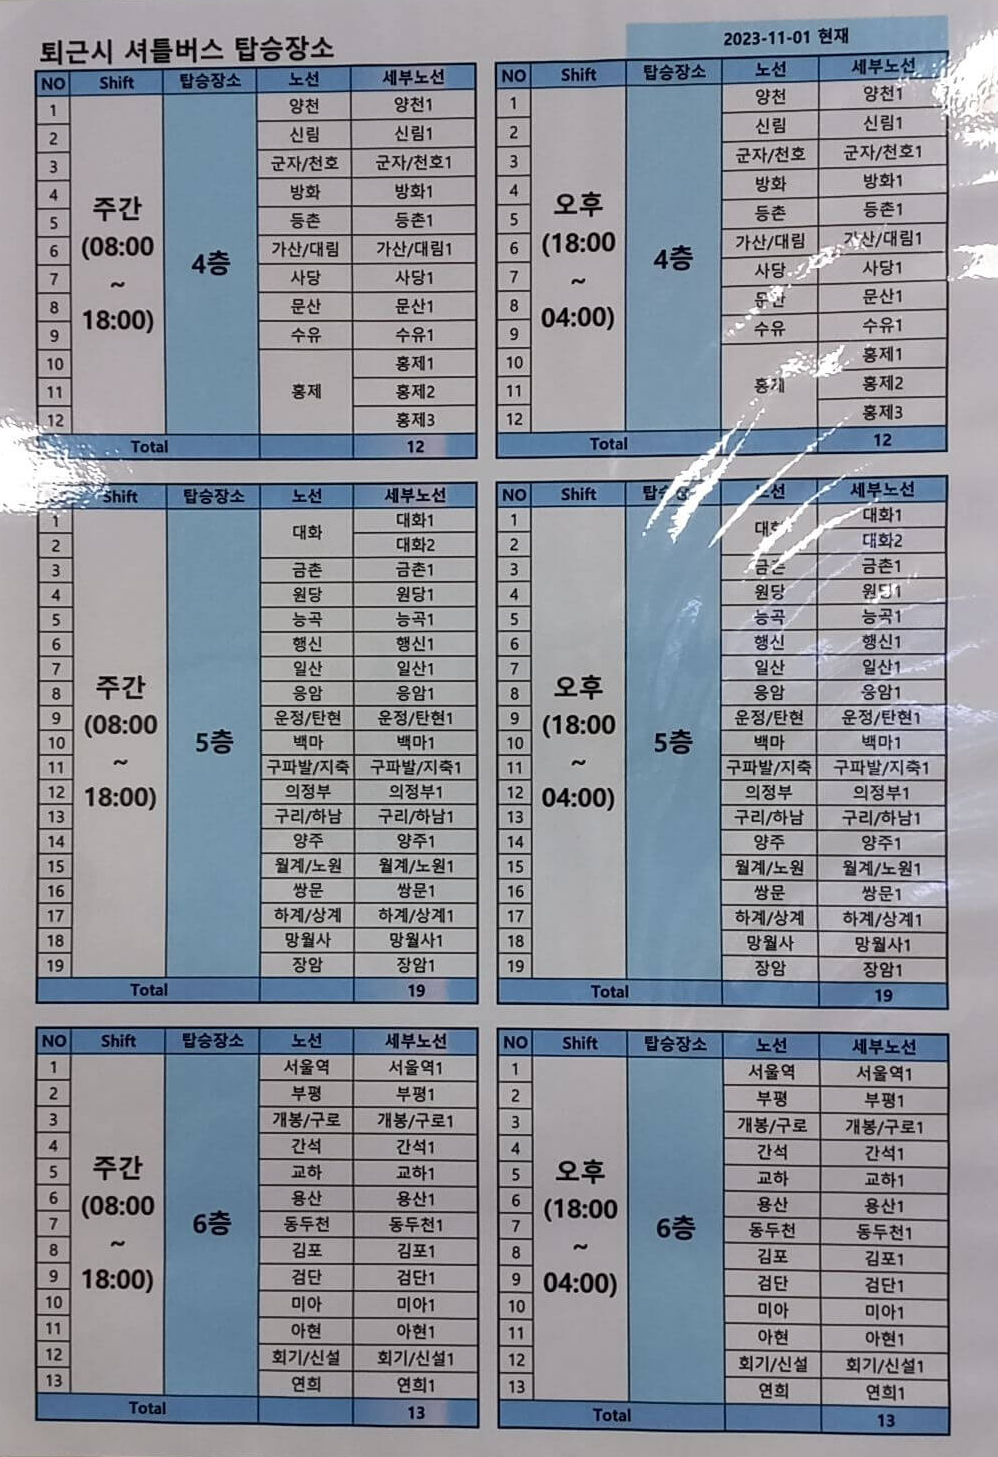 퇴근시 셔틀버스 탑승장소
2023-11-01 현재
NO Shift 탑승장소 노선 세부노선
주간 (08:00 ~ 18:00)
4층
1 양천 양천1
2 신림 신림1
3 군자/천호 군자/천호1
4 방화 방화1
5 등촌 등촌1
6 가산/대림 가산/대림1
7 사당 사당1
8 문산 문산1
9 수유 수유1
10 홍제 홍제1
11 홍제2
12 홍제3
Total 12
NO Shift 탑승장소 노선 세부노선
오후 (18:00 ~ 04:00)
4층
1 양천 양천1
2 신림 신림1
3 군자/천호 군자/천호1
4 방화 방화1
5 등촌 등촌1
6 가산/대림 가산/대림1
7 사당 사당1
8 문산 문산1
9 수유 수유1
10 홍제 홍제1
11 홍제2
12 홍제3
Total 12
Shift 탑승장소 노선 세부노선
주간 (08:00 ~ 18:00)
5층
1 대화 대화1
2 대화2
3 금촌 금촌1
4 원당 원당1
5 능곡 능곡1
6 행신 행신1
7 일산 일산1
8 응암 응암1
9 운정/탄현 운정/탄현1
10 백마 백마1
11 구파발/지축 구파발/지축1
12 의정부 의정부1
13 구리/하남 구리/하남1
14 양주 양주1
15 월계/노원 월계/노원1
16 쌍문 쌍문1
17 하계/상계 하계/상계1
18 망월사 망월사1
19 장암 장암1
Total 19
NO Shift 노선 세부노선
오후 (18:00 ~ 04:00)
5층
1 대화 대화1
2 대화2
3 금촌 금촌1
4 원당 원당1
5 능곡 능곡1
6 행신 행신1
7 일산 일산1
8 응암 응암1
9 운정/탄현 운정/탄현1
10 백마 백마1
11 구파발/지축 구파발/지축1
12 의정부 의정부1
13 구리/하남 구리/하남1
14 양주 양주1
15 월계/노원 월계/노원1
16 쌍문 쌍문1
17 하계/상계 하계/상계1
18 망월사 망월사1
19 장암 장암1
Total 19
NO Shift 탑승장소 노선 세부노선
주간 (08:00 ~ 18:00)
6층
1 서울역 서울역1
2 부평 부평1
3 개봉/구로 개봉/구로1
4 간석 간석1
5 교하 교하1
6 용산 용산1
7 동두천 동두천1
8 김포 김포1
9 검단 검단1
10 미아 미아1
11 아현 아현1
12 회기/신설 회기/신설1
13 연희 연희1
Total 13
NO Shift 탑승장소 노선 세부노선
오후 (18:00 ~ 04:00)
6층
1 서울역 서울역1
2 부평 부평1
3 개봉/구로 개봉/구로1
4 간석 간석1
5 교하 교하1
6 용산 용산1
7 동두천 동두천1
8 김포 김포1
9 검단 검단1
10 미아 미아1
11 아현 아현1
12 회기/신설 회기/신설1
13 연희 연희1
Total 13